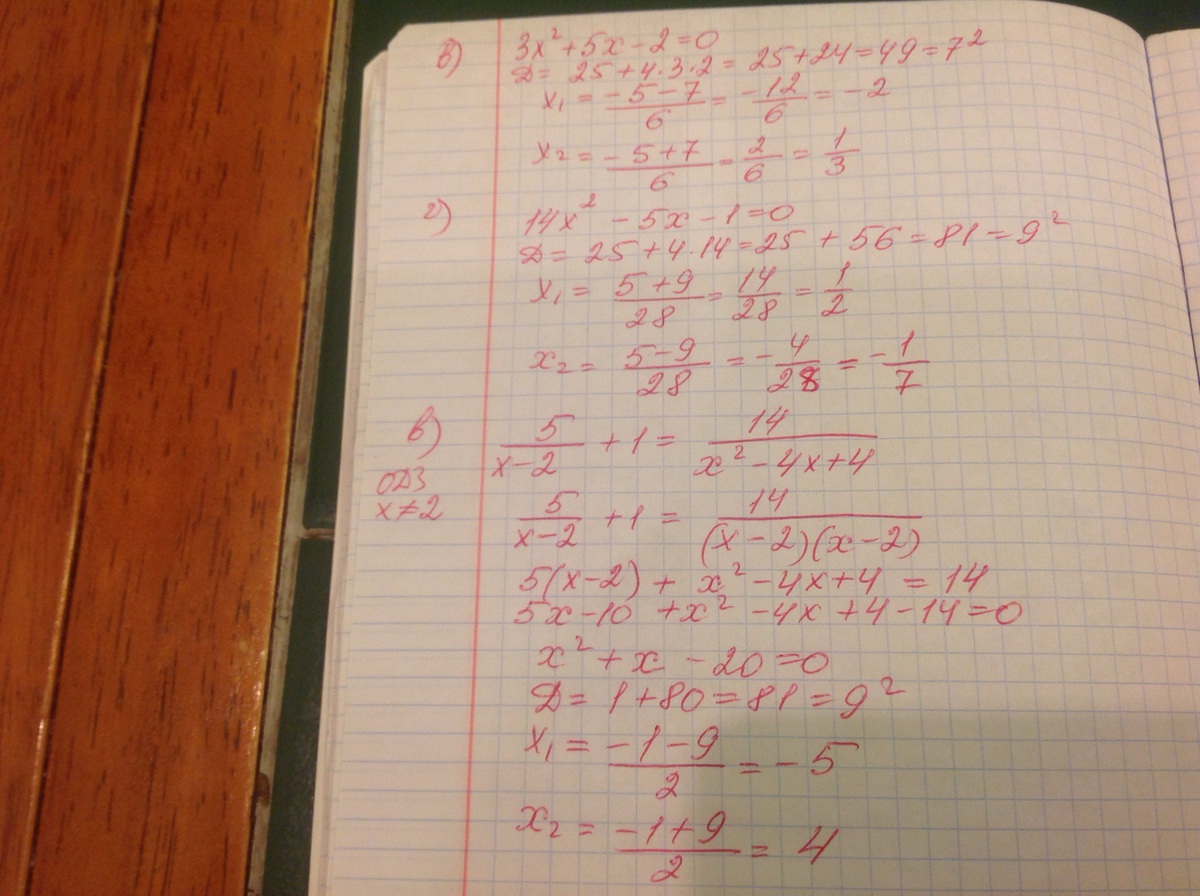 в) 3x² + 5x - 2 = 0
Д = 25 + 4·3·2 = 25 + 24 = 49 = 7²
x₁ = (-5 - 7)/6 = -12/6 = -2
x₂ = (-5 + 7)/6 = 2/6 = 1/3
г) 14x² - 5x - 1 = 0
Д = 25 + 4·14 = 25 + 56 = 81 = 9²
x₁ = (5 + 9)/28 = 14/28 = 1/2
x₂ = (5 - 9)/28 = -4/28 = -1/7
в) 5/(x - 2) + 1 = 14/(x² - 4x + 4)
ОДЗ
x ≠ 2
5/(x - 2) + 1 = 14/((x - 2)(x - 2))
5(x - 2) + x² - 4x + 4 = 14
5x - 10 + x² - 4x + 4 - 14 = 0
x² + x - 20 = 0
Д = 1 + 80 = 81 = 9²
x₁ = (-1 - 9)/2 = -5
x₂ = (-1 + 9)/2 = 4